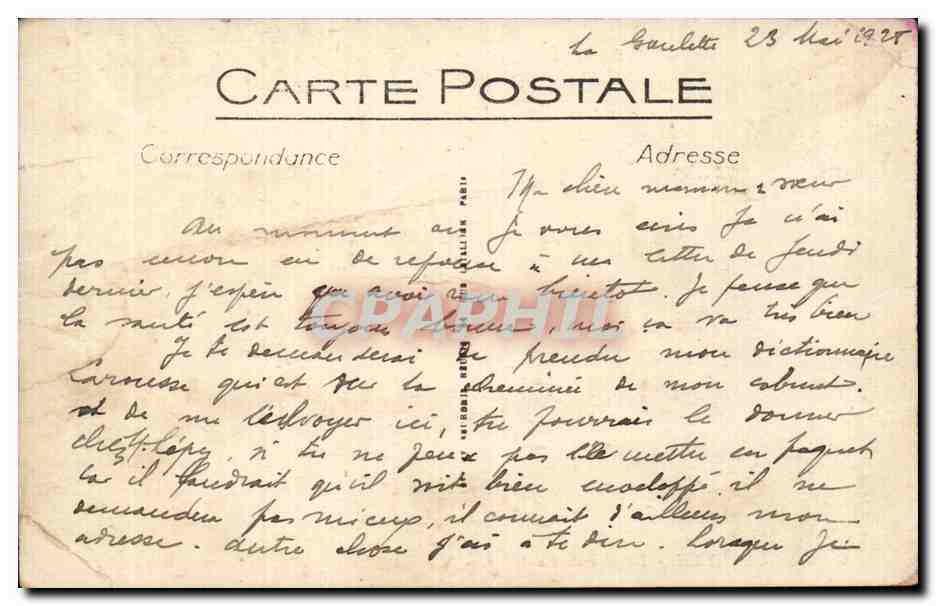 La Goulette 23 Mai 1928
CARTE POSTALE
Correspondance
Adresse
Ma chère maman, sœur
Au moment où je vous écris Je n'ai
pas encore eu de reponse à mes lettre de Jeudi
dernier, j'espère avoir bientot. Je pense que
la santé est toujours bonne, moi ça va très bien
Je te demanderai de prendre mon dictionnaire
Larousse qui est sur la cheminée de mon cabinet.
et de me l'envoyer ici, tu pourrais le donner
chez Lépy, si tu ne peux pas le mettre en paquet
car il faudrait qu'il soit bien enveloppé, il ne
demandera pas mieux, il connait d'ailleurs mon
adresse. Autre chose j'ai à te dire. Lorsque je
CPAPHIL
PARIS